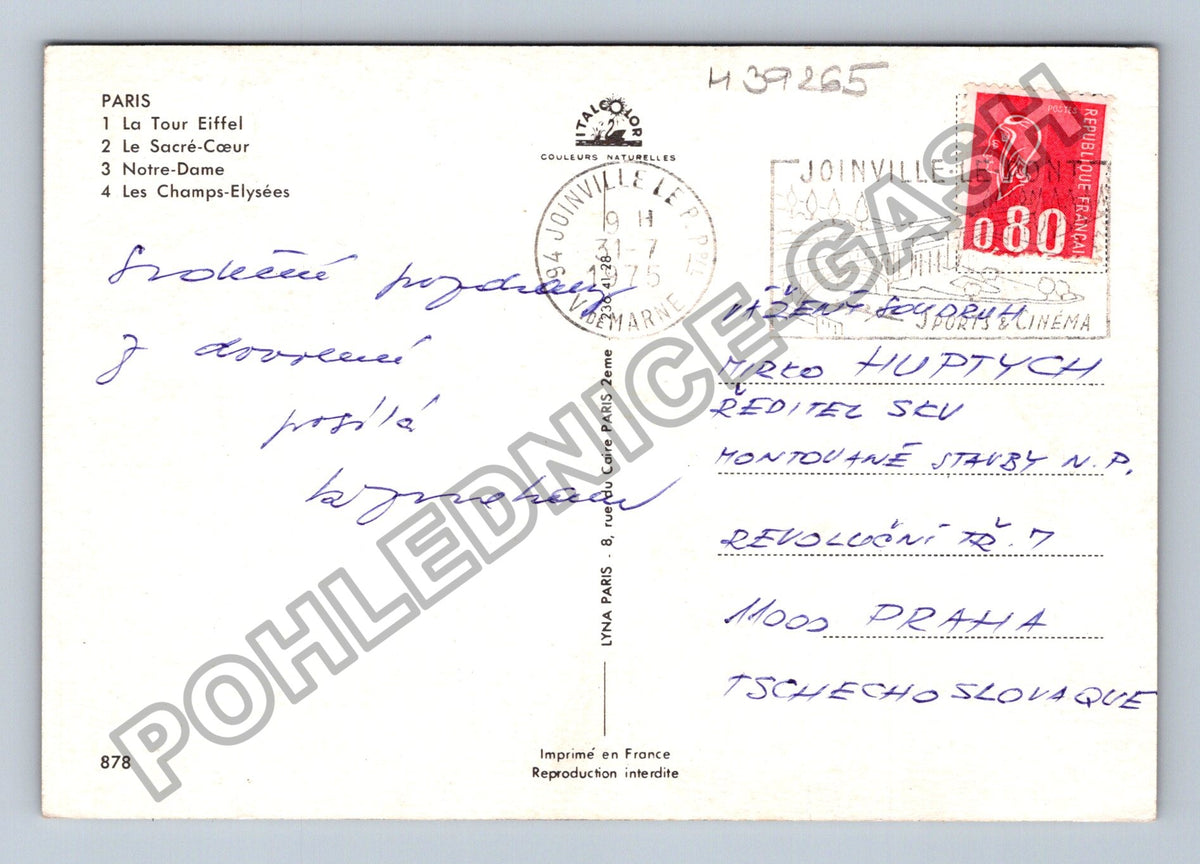 H 39265
PARIS
1 La Tour Eiffel
2 Le Sacré-Cœur
3 Notre-Dame
4 Les Champs-Elysées
ITALCOLOR
COULEURS NATURELLES
94 JOINVILLE LE P.
9 H
31-7
1975
V. DE MARNE
JOINVILLE LE PONT
SPORTS & CINÉMA
POSTES
REPUBLIQUE FRANCAISE
0.80
Srdečné pozdravy
z dovolené
posílá
VÁŽENÝ SOUDRUH
MIRKO HUPTYCH
ŘEDITEL SKV
MONTOVANÉ STAVBY N.P.
REVOLUČNÍ TŘ. 7
11000 PRAHA
TSCHECHOSLOVAQUE
LYNA PARIS - 8, rue du Caire PARIS 2eme 236-41-28
878
Imprimé en France
Reproduction interdite
POHLEDNICE-GASH